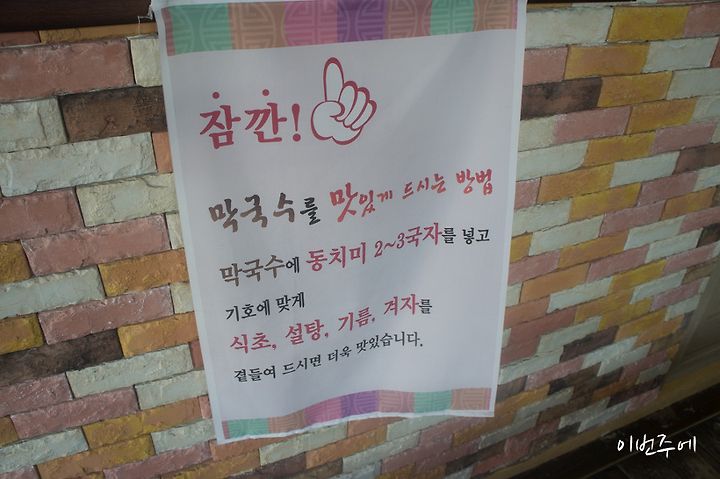 잠깐!
막국수를 맛있게 드시는 방법
막국수에 동치미 2~3국자를 넣고
기호에 맞게
식초, 설탕, 기름, 겨자를
곁들여 드시면 더욱 맛있습니다.
이번주에